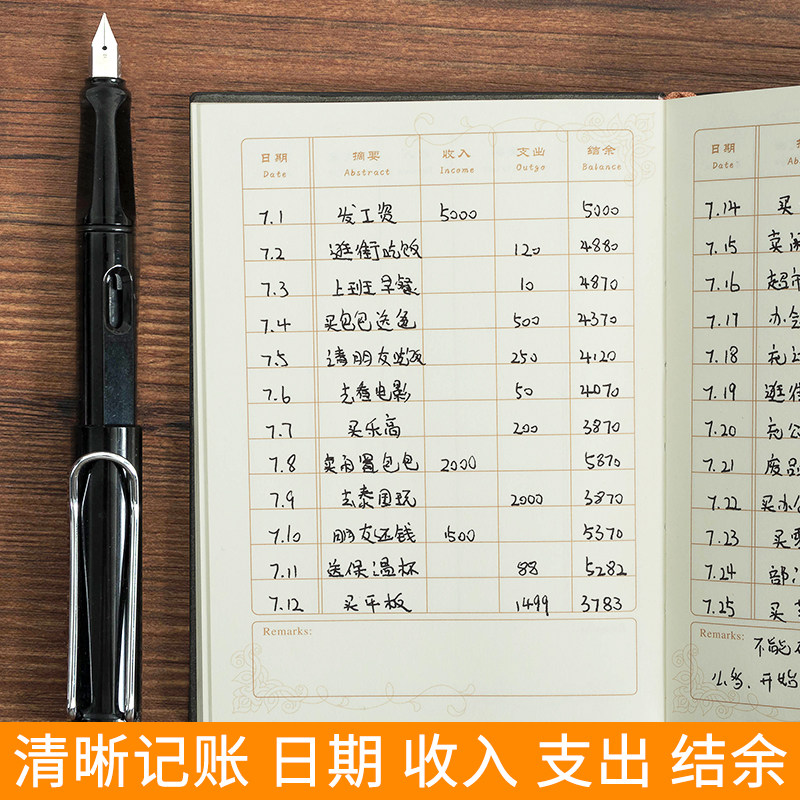 日期 摘要 收入 支出 结余
Date Abstract Income Outgo Balance
7.1 发工资 5000 5000
7.2 逛街吃饭 120 4880
7.3 上班早餐 10 4870
7.4 买包包送爸 500 4370
7.5 请朋友吃饭 250 4120
7.6 去看电影 50 4070
7.7 买乐高 200 3870
7.8 卖闲置包包 2000 5870
7.9 去泰国玩 2000 3870
7.10 朋友还钱 1500 5370
7.11 送保温杯 88 5282
7.12 买平板 1499 3783
Remarks:
日期
Date
7.14 买
7.15 卖闲
7.16 超市
7.17 办会
7.18
7.19 逛街
7.20
7.21 废品
7.22 买办公
7.23 买
7.24 部
7.25 买
Remarks: 不能
开始
清晰记账 日期 收入 支出 结余